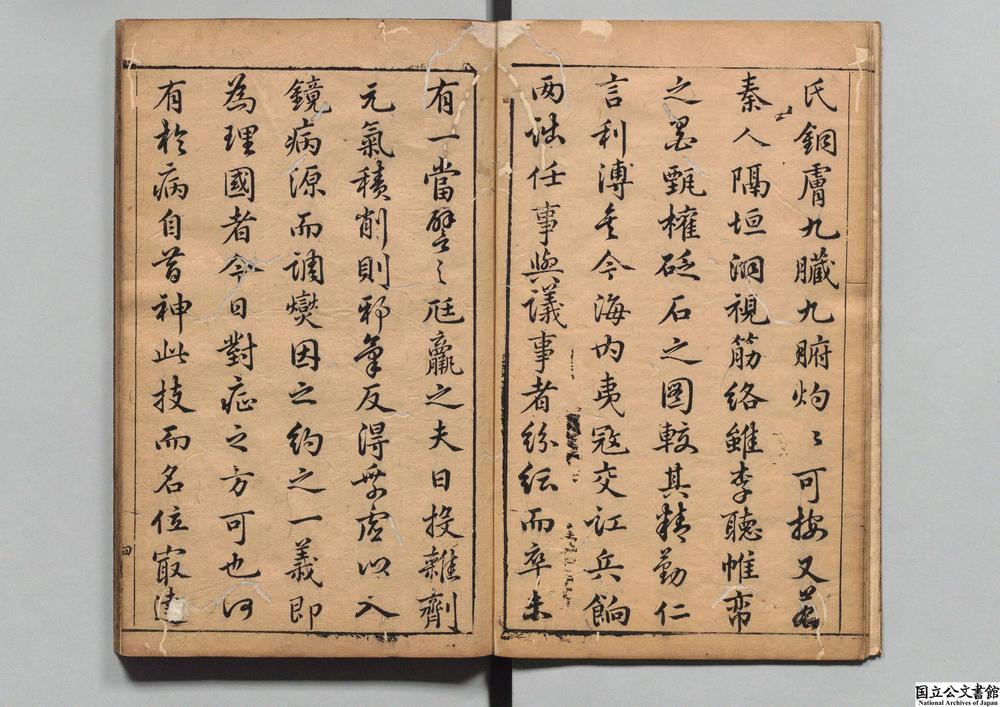 氏銅膚九臟九腑灼〻可按又若
秦人隔垣洞視筋絡雖李聽帷帘
之墨甄權砭石之圖較其精勤仁
言利溥矣今海內夷寇交訌兵餉
兩詘任事與議事者紛紜而卒未
有一當譬之尫羸之夫日投雜劑
元氣積削則邪氣反得乗虛以入
鏡病源而調爕因之約之一義即
為理國者今日對症之方可也何
有於病自昔神此技而名位㝡達
四
国立公文書館
National Archives of Japan